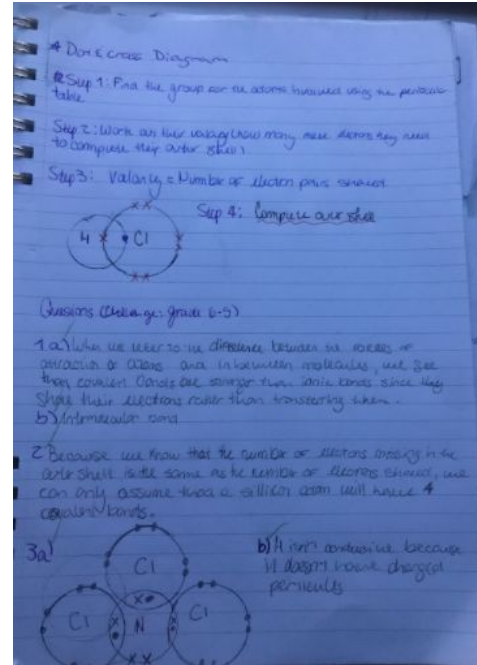 * Dot & cross Diagram
Step 1: Find the group for the atoms involved using the periodic
table
Step 2: Work out their valency (how many more electrons they need
to compleate their outer shell)
Step 3: Valancy = Number of electron pairs shared
Step 4: Compleate outer shell
H Cl
Questions (Challenge: grade 6-5)
1a) When we refer to the difference between the forces of
attraction of atoms and inbetween molecules, we see
than covalent bonds are stronger than ionic bonds since they
share their electrons rather than transferring them.
b) Intermolecular bond
2 Because we know that the number of electrons missing in the
outer shell is the same as the number of electrons shared, we
can only assume that a sillicon atom will have 4
covalent bonds.
3a)
Cl
Cl N Cl
b) It isn't conductive because
it doesn't have charged